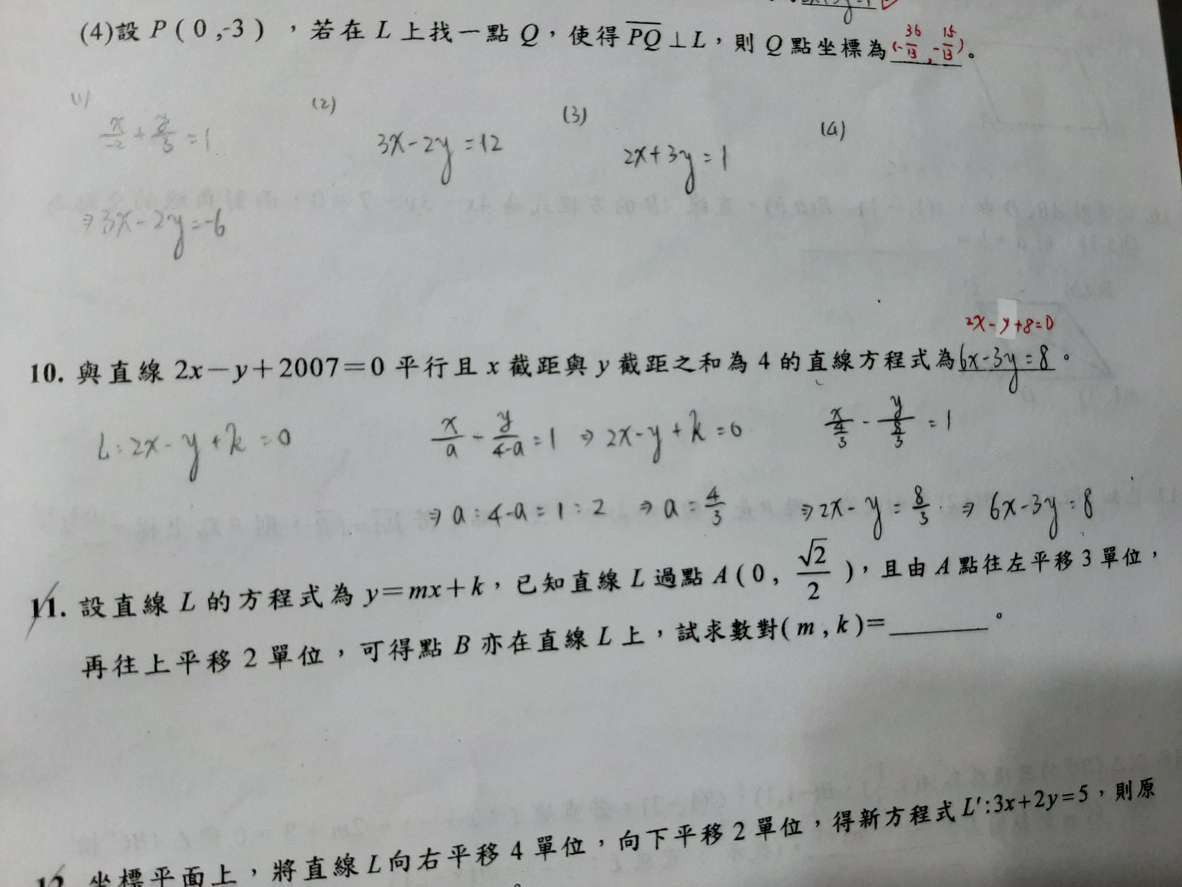 (4)設 P ( 0 ,-3 ) ，若在 L 上找一點 Q，使得 PQ⊥L，則 Q 點坐標為(-36/13 , -15/13)。
(1) (2) (3) (4)
x/-2 + y/3 = 1 3x-2y=12 2x+3y=1
⇒3x-2y=-6
2x-y+8=0
10. 與直線 2x－y＋2007＝0 平行且 x 截距與 y 截距之和為 4 的直線方程式為6x-3y=8。
L:2x-y+k=0 x/a - y/4-a = 1 ⇒ 2x-y+k=0 x/(4/3) - y/(8/3) = 1
⇒ a:4-a=1:2 ⇒ a=4/3 ⇒2x-y=8/3 ⇒ 6x-3y=8
11. 設直線 L 的方程式為 y＝mx＋k，已知直線 L 過點 A ( 0 , √2/2 )，且由 A 點往左平移 3 單位，
再往上平移 2 單位，可得點 B 亦在直線 L 上，試求數對( m , k )＝______。
12. 坐標平面上，將直線 L 向右平移 4 單位，向下平移 2 單位，得新方程式 L′:3x+2y=5，則原